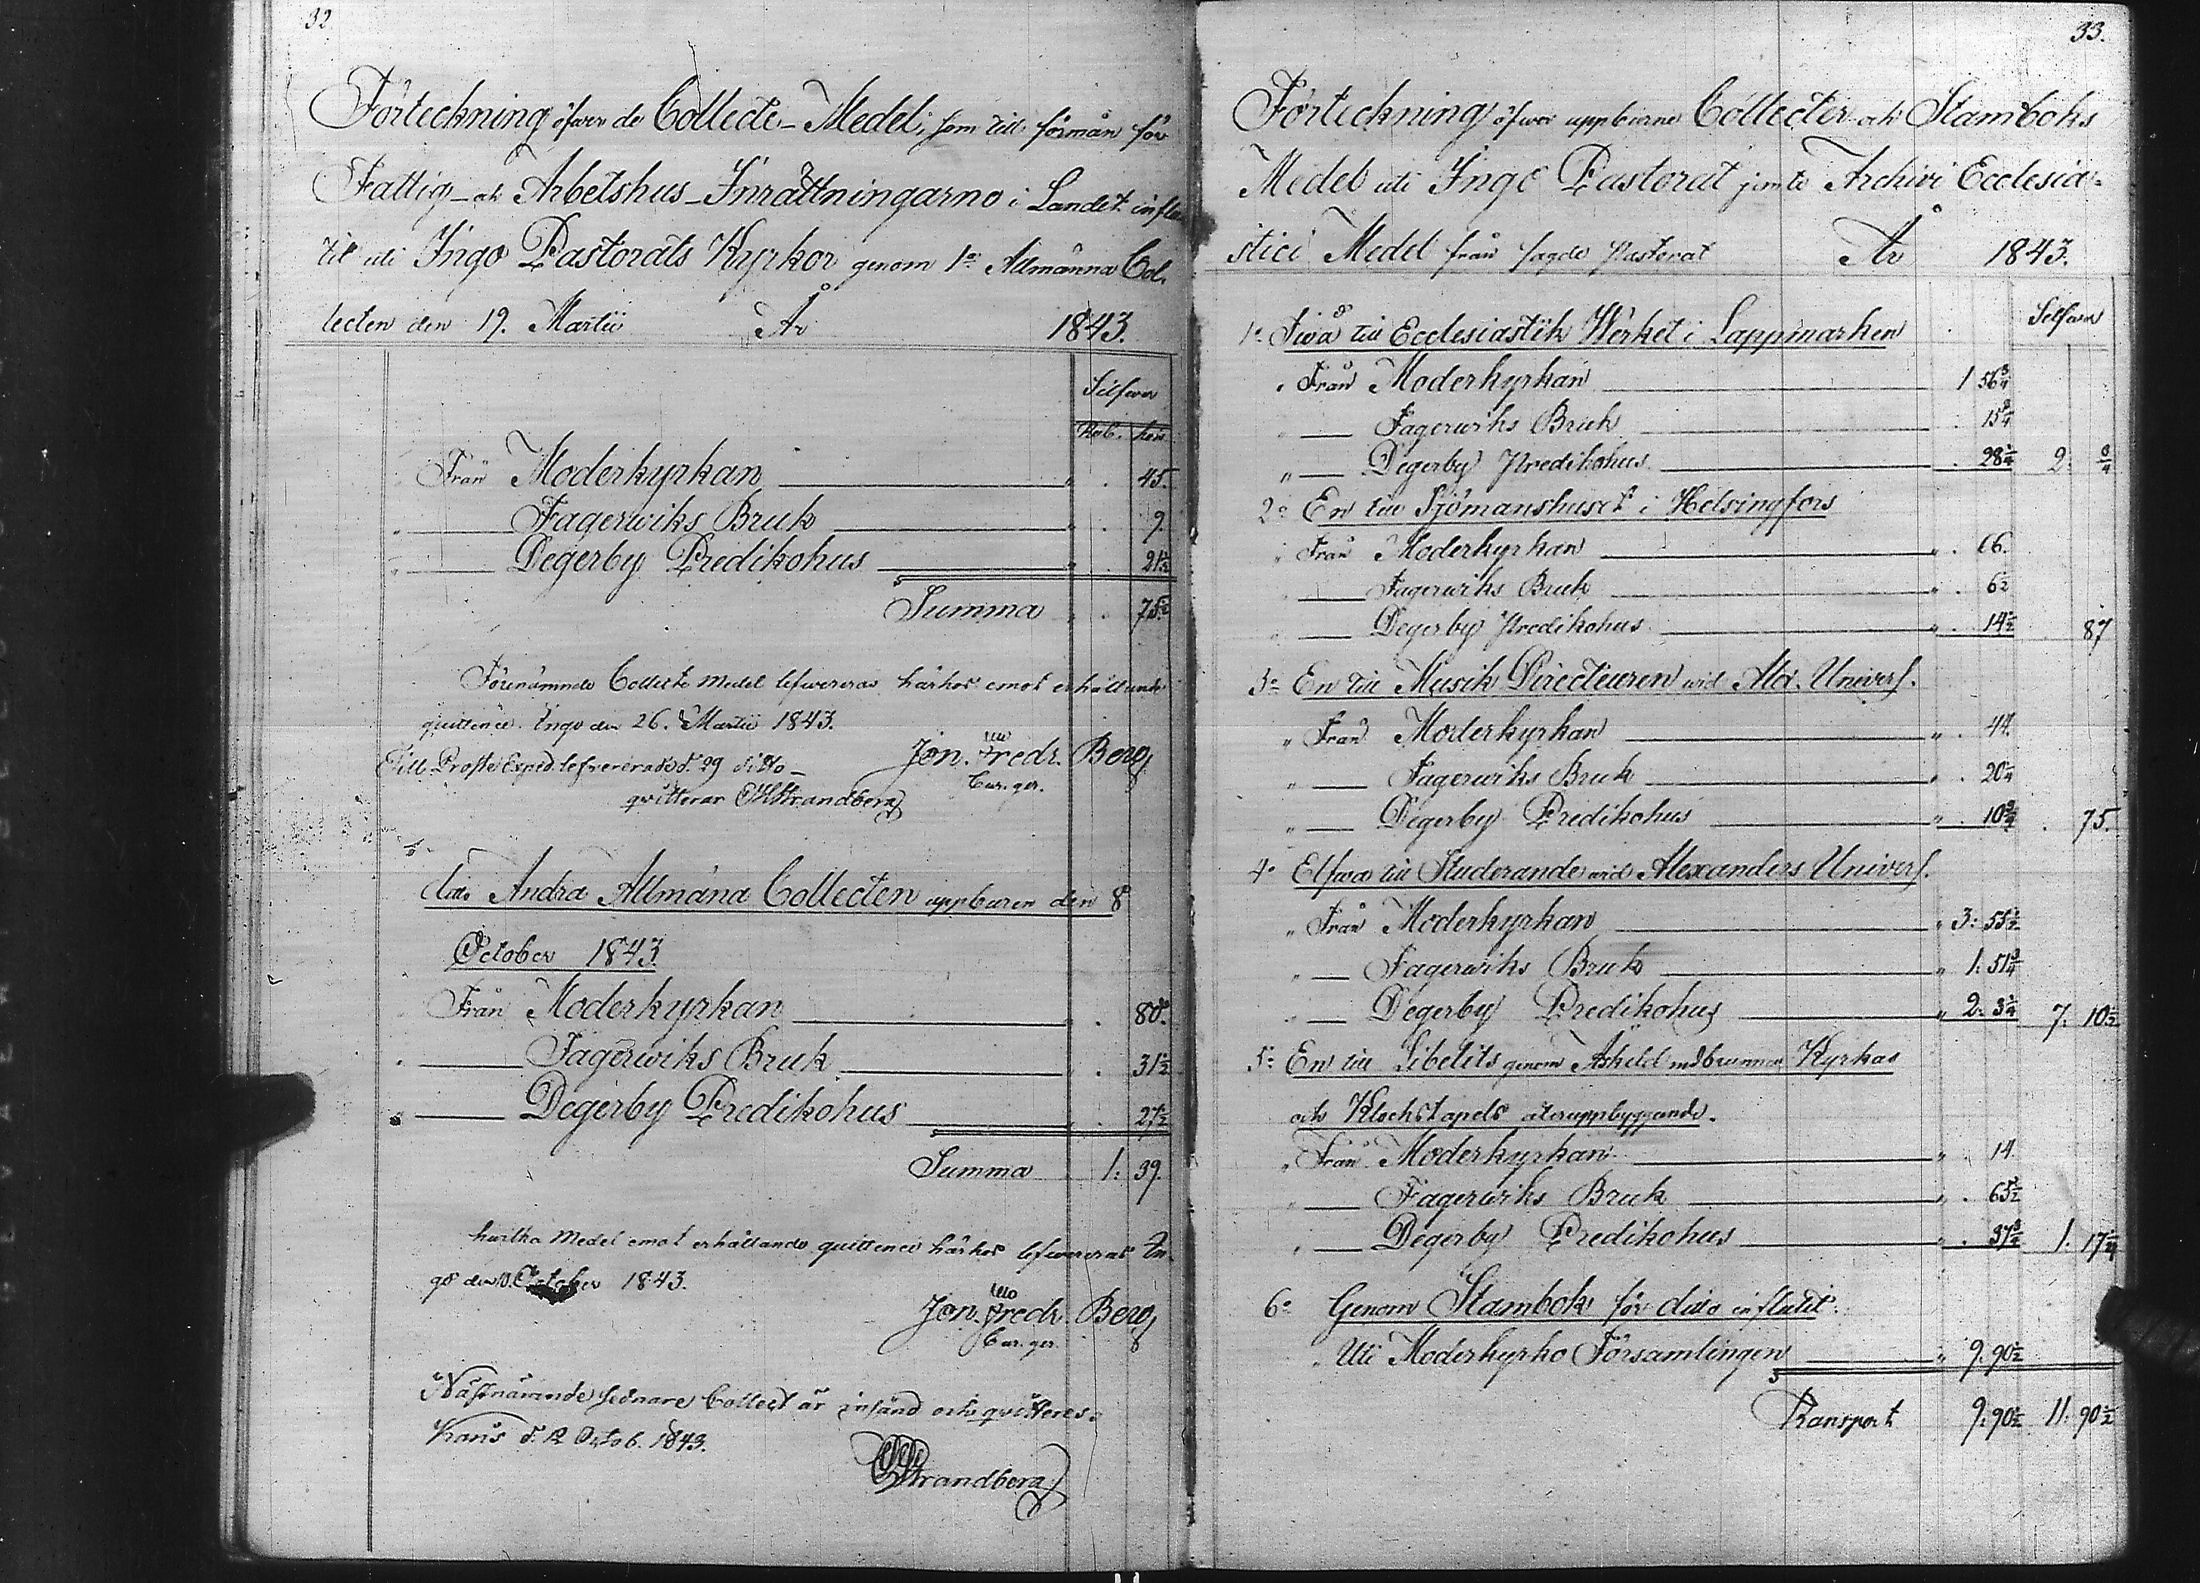 32
Förteckning öfwer de Collecte-Medel, som till förmån för
Fattig- och Arbetshus-Inrättningarne i Landet influ-
tit uti Ingo Pastorats Kyrkor genom 1:a Allmänna Col-
lecten den 19. Martii År 1843.
Silfwer
Rub. kop.
Från Moderkyrkan " . 45.
" Fagerwiks Bruk " . 9.
" Degerby Predikohus " . 21 1/2
Summa " . 75 1/2
Förenämnde Collecte Medel lefwereras härhos emot erhållande
quittence. Ingo den 26. Martii 1843.
Jon. Fredr. Berg
Cur. ger.
Till Prosts Exped. lefvererades d. 29 ditto
qvitterar Strandberg
dito Andra Allmäna Collecten uppburen den 8
October 1843.
Från Moderkyrkan " . 80.
" Fagerwiks Bruk . 31 1/2
" Degerby Predikohus " . 27 1/2
Summa 1: 39.
hwilka Medel emot erhållande quittence härhos lefwereras In-
go den October 1843.
Jon. Fredr. Berg
Cur. ger.
Näfstnämnde sednare Collect är insänd och qvitteres.
d. 12 Octob. 1843.
Strandberg
33.
Förteckning öfwer uppburne Collecter och Stamboks
Medel uti Ingo Pastorat jemte Archivi Ecclesia-
stici Medel från sagde Pastorat År 1843.
Silfwer
1:o Twå till Ecclesiastik Werket i Lappmarken
" Från Moderkyrkan 1 56 3/4
" Fagerwiks Bruk . 15 3/4
" Degerby Predikohus . 28 1/4 2. 3/4
2:o En till Sjömanshuset i Helsingfors
" Från Moderkyrkan " . 66.
" Fagerwiks Bruk " . 6 1/2
" Degerby Predikohus " . 14 1/2 . 87
3:o En till Musik Directeuren wid Alex. Univers.
" Från Moderkyrkan " . 44.
" Fagerwiks Bruk " . 20 1/4
" Degerby Predikohus " . 10 3/4 . 75.
4:o Elfwa till Studerande wid Alexanders Univers.
" Från Moderkyrkan " 3: 55 1/2
" Fagerwiks Bruk " 1: 51 3/4
" Degerby Predikohus " 2: 3 1/4 7: 10 1/2
5:o En till Libelits genom Åskeld nedbrunna Kyrkas
och Klockstapels återuppbyggande.
" Från Moderkyrkan " . 14.
" Fagerwiks Bruk " . 65 1/2
" Degerby Predikohus " . 37 3/4 1: 17 1/4
6:o Genom Stambok för dito influtit.
" Uti Moderkyrko Församlingen " 9. 90 1/2
Transport 9: 90 1/2 11: 90 1/2